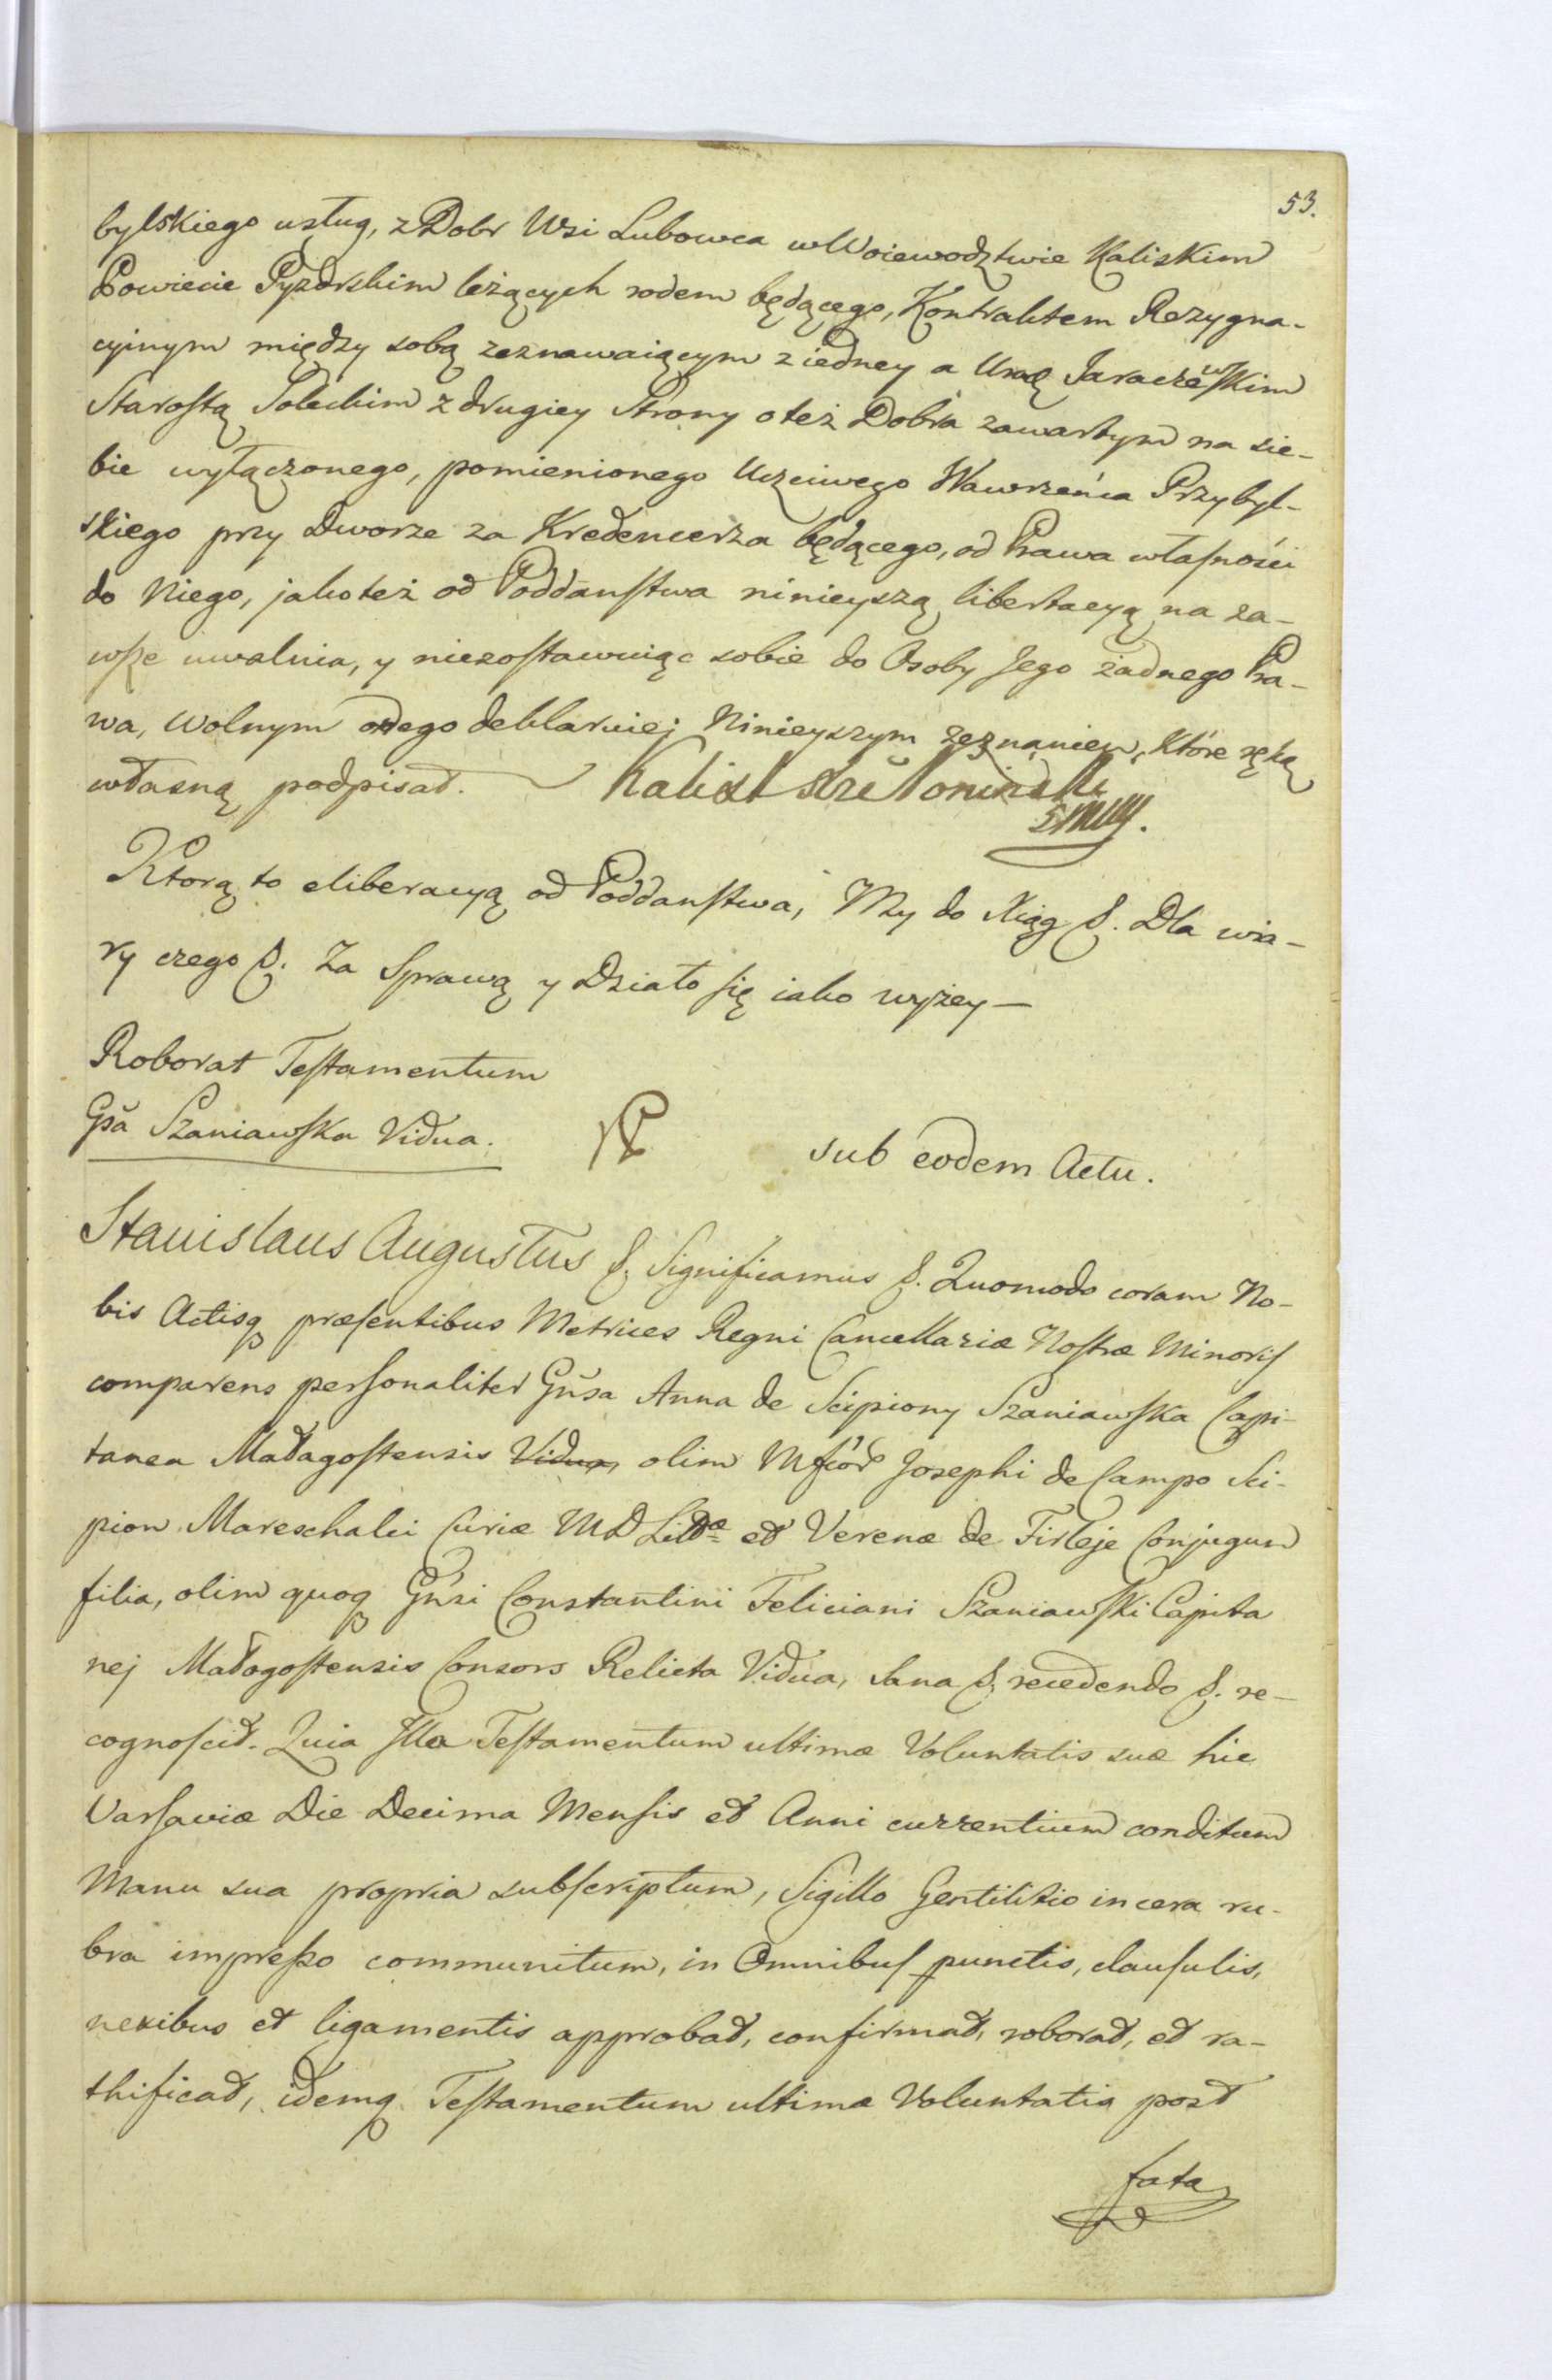 53.
bylskiego usług, z Dobr Wsi Lubowca w Woiewodztwie Kaliskim
Powiecie Pyzdrskim leżących rodem będącego, Kontraktem Rezygna-
cyinym między sobą zeznawaiącym z iedney a Urną Jaraczewskim
Starostą Soleckim z drugiey Strony o też Dobra zawartym na sie-
bie wyłączonego, pomienionego Uczciwego Wawrzeńca Przybyl-
skiego przy Dworze za Kredencerza będącego, od Prawa własności
do Niego, jako też od Poddaństwa ninieyszą libertacyą na za-
wsze uwalnia, y niezostawuiąc sobie do Osoby Jego żadnego Pra-
wa, wolnym onego deklaruiej Ninieyszym zeznaniem, które ręką
własną podpisał. Kalixt Xże Poninski
mpp.
Ktorą to eliberacyą od Poddaństwa, My do Xiąg &. Dla wia-
ry czego &. Za Sprawą y Działo się iako wyżey —
Roborat Testamentum
Gsa Szaniawska Vidua.
sub eodem Actu.
Stanislaus Augustus &. Significamus &. Quomodo coram No-
bis Actisq præsentibus Metrices Regni Cancellariæ Nostræ Minoris
comparens personaliter Gnsa Anna de Scipiony Szaniawska Capi-
tanea Małagostensis Vidua, olim Mfcor Josephi de Campo Sci-
pion Mareschalci Curiæ M D Littæ et Verenæ de Firleje Conjugum
filia, olim quoq Gnsi Constantini Feliciani Szaniawski Capita
nej Małogostensis Consors Relicta Vidua, Sana &. recedendo &. re-
cognoscit. Quia Illa Testamentum ultimæ Voluntatis suæ hic
Varsaviæ Die Decima Mensis et Anni currentium conditum
Manu sua propria subscriptum, Sigillo Gentilitio in cera ru-
bra impresso communitum, in Omnibus punctis, clausulis,
nexibus et ligamentis approbat, confirmat, roborat, et ra-
thificat, idemq Testamentum ultimæ Voluntatis post
fata